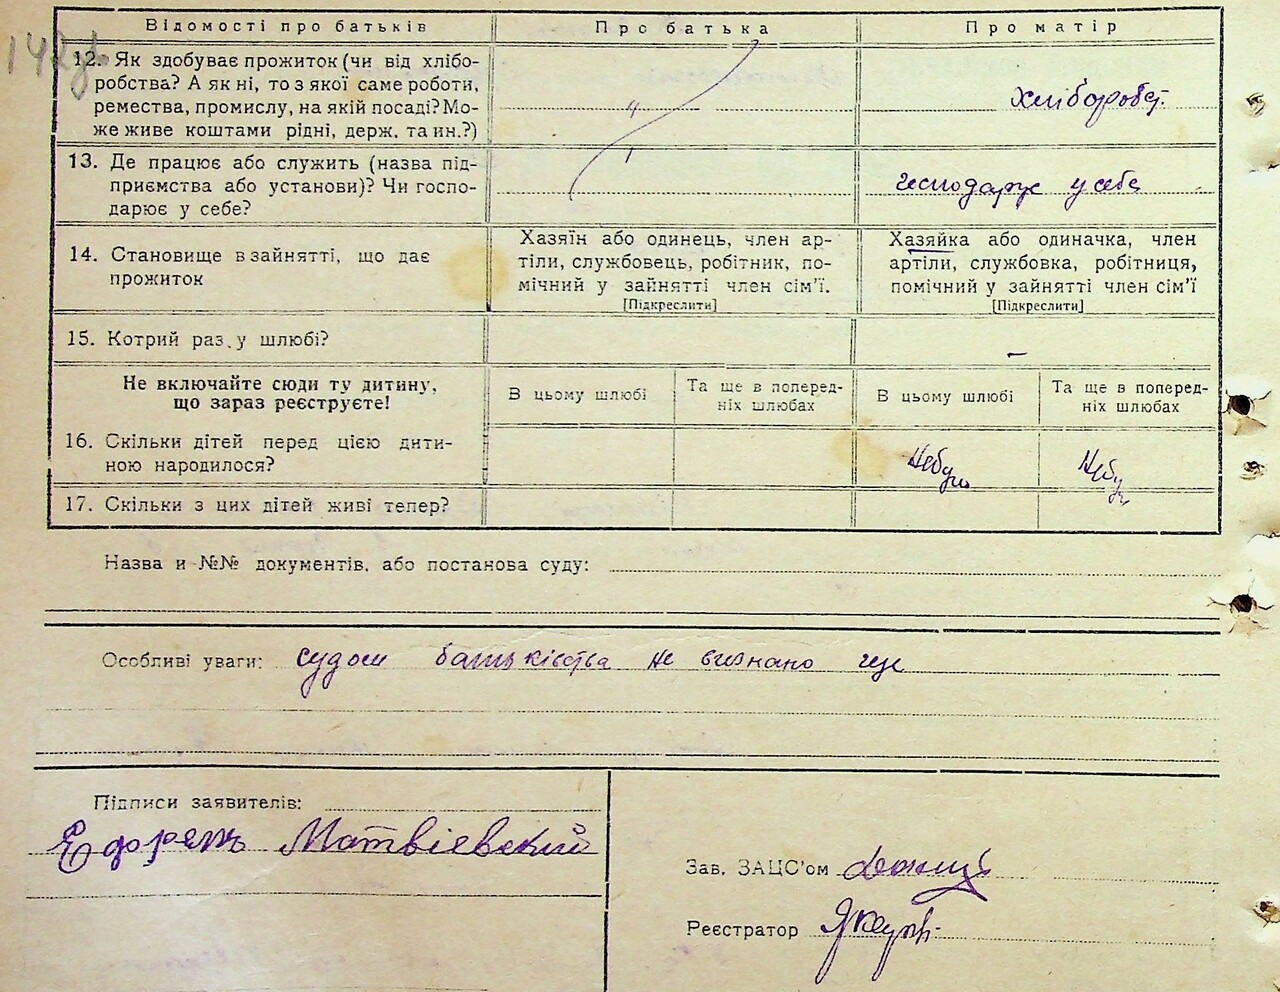 142
Відомості про батьків
Про батька
Про матір
12. Як здобуває прожиток (чи від хлібо-
робства? А як ні, то з якої саме роботи,
ремества, промислу, на якій посаді? Мо-
же живе коштами рідні, держ. та ин.?)
"
хлібороб.
13. Де працює або служить (назва під-
приємства або установи)? Чи госпо-
дарює у себе?
господарує у себе
14. Становище в зайнятті, що дає
прожиток
Хазяїн або одинець, член ар-
тіли, службовець, робітник, по-
мічний у зайнятті член сім’ї.
[Підкреслити]
Хазяйка або одиначка, член
артіли, службовка, робітниця,
помічний у зайнятті член сім’ї
[Підкреслити]
15. Котрий раз у шлюбі?
–
Не включайте сюди ту дитину,
що зараз реєструєте!
В цьому шлюбі
Та ще в поперед-
ніх шлюбах
В цьому шлюбі
Та ще в поперед-
ніх шлюбах
16. Скільки дітей перед цією дити-
ною народилося?
Небуло
Небуло
17. Скільки з цих дітей живі тепер?
Назва и №№ документів, або постанова суду:
Особливі уваги: судом батьківства не визнано ще
Підписи заявителів:
Ефремъ Матвіевский
Зав. ЗАЦС’ом
Реєстратор